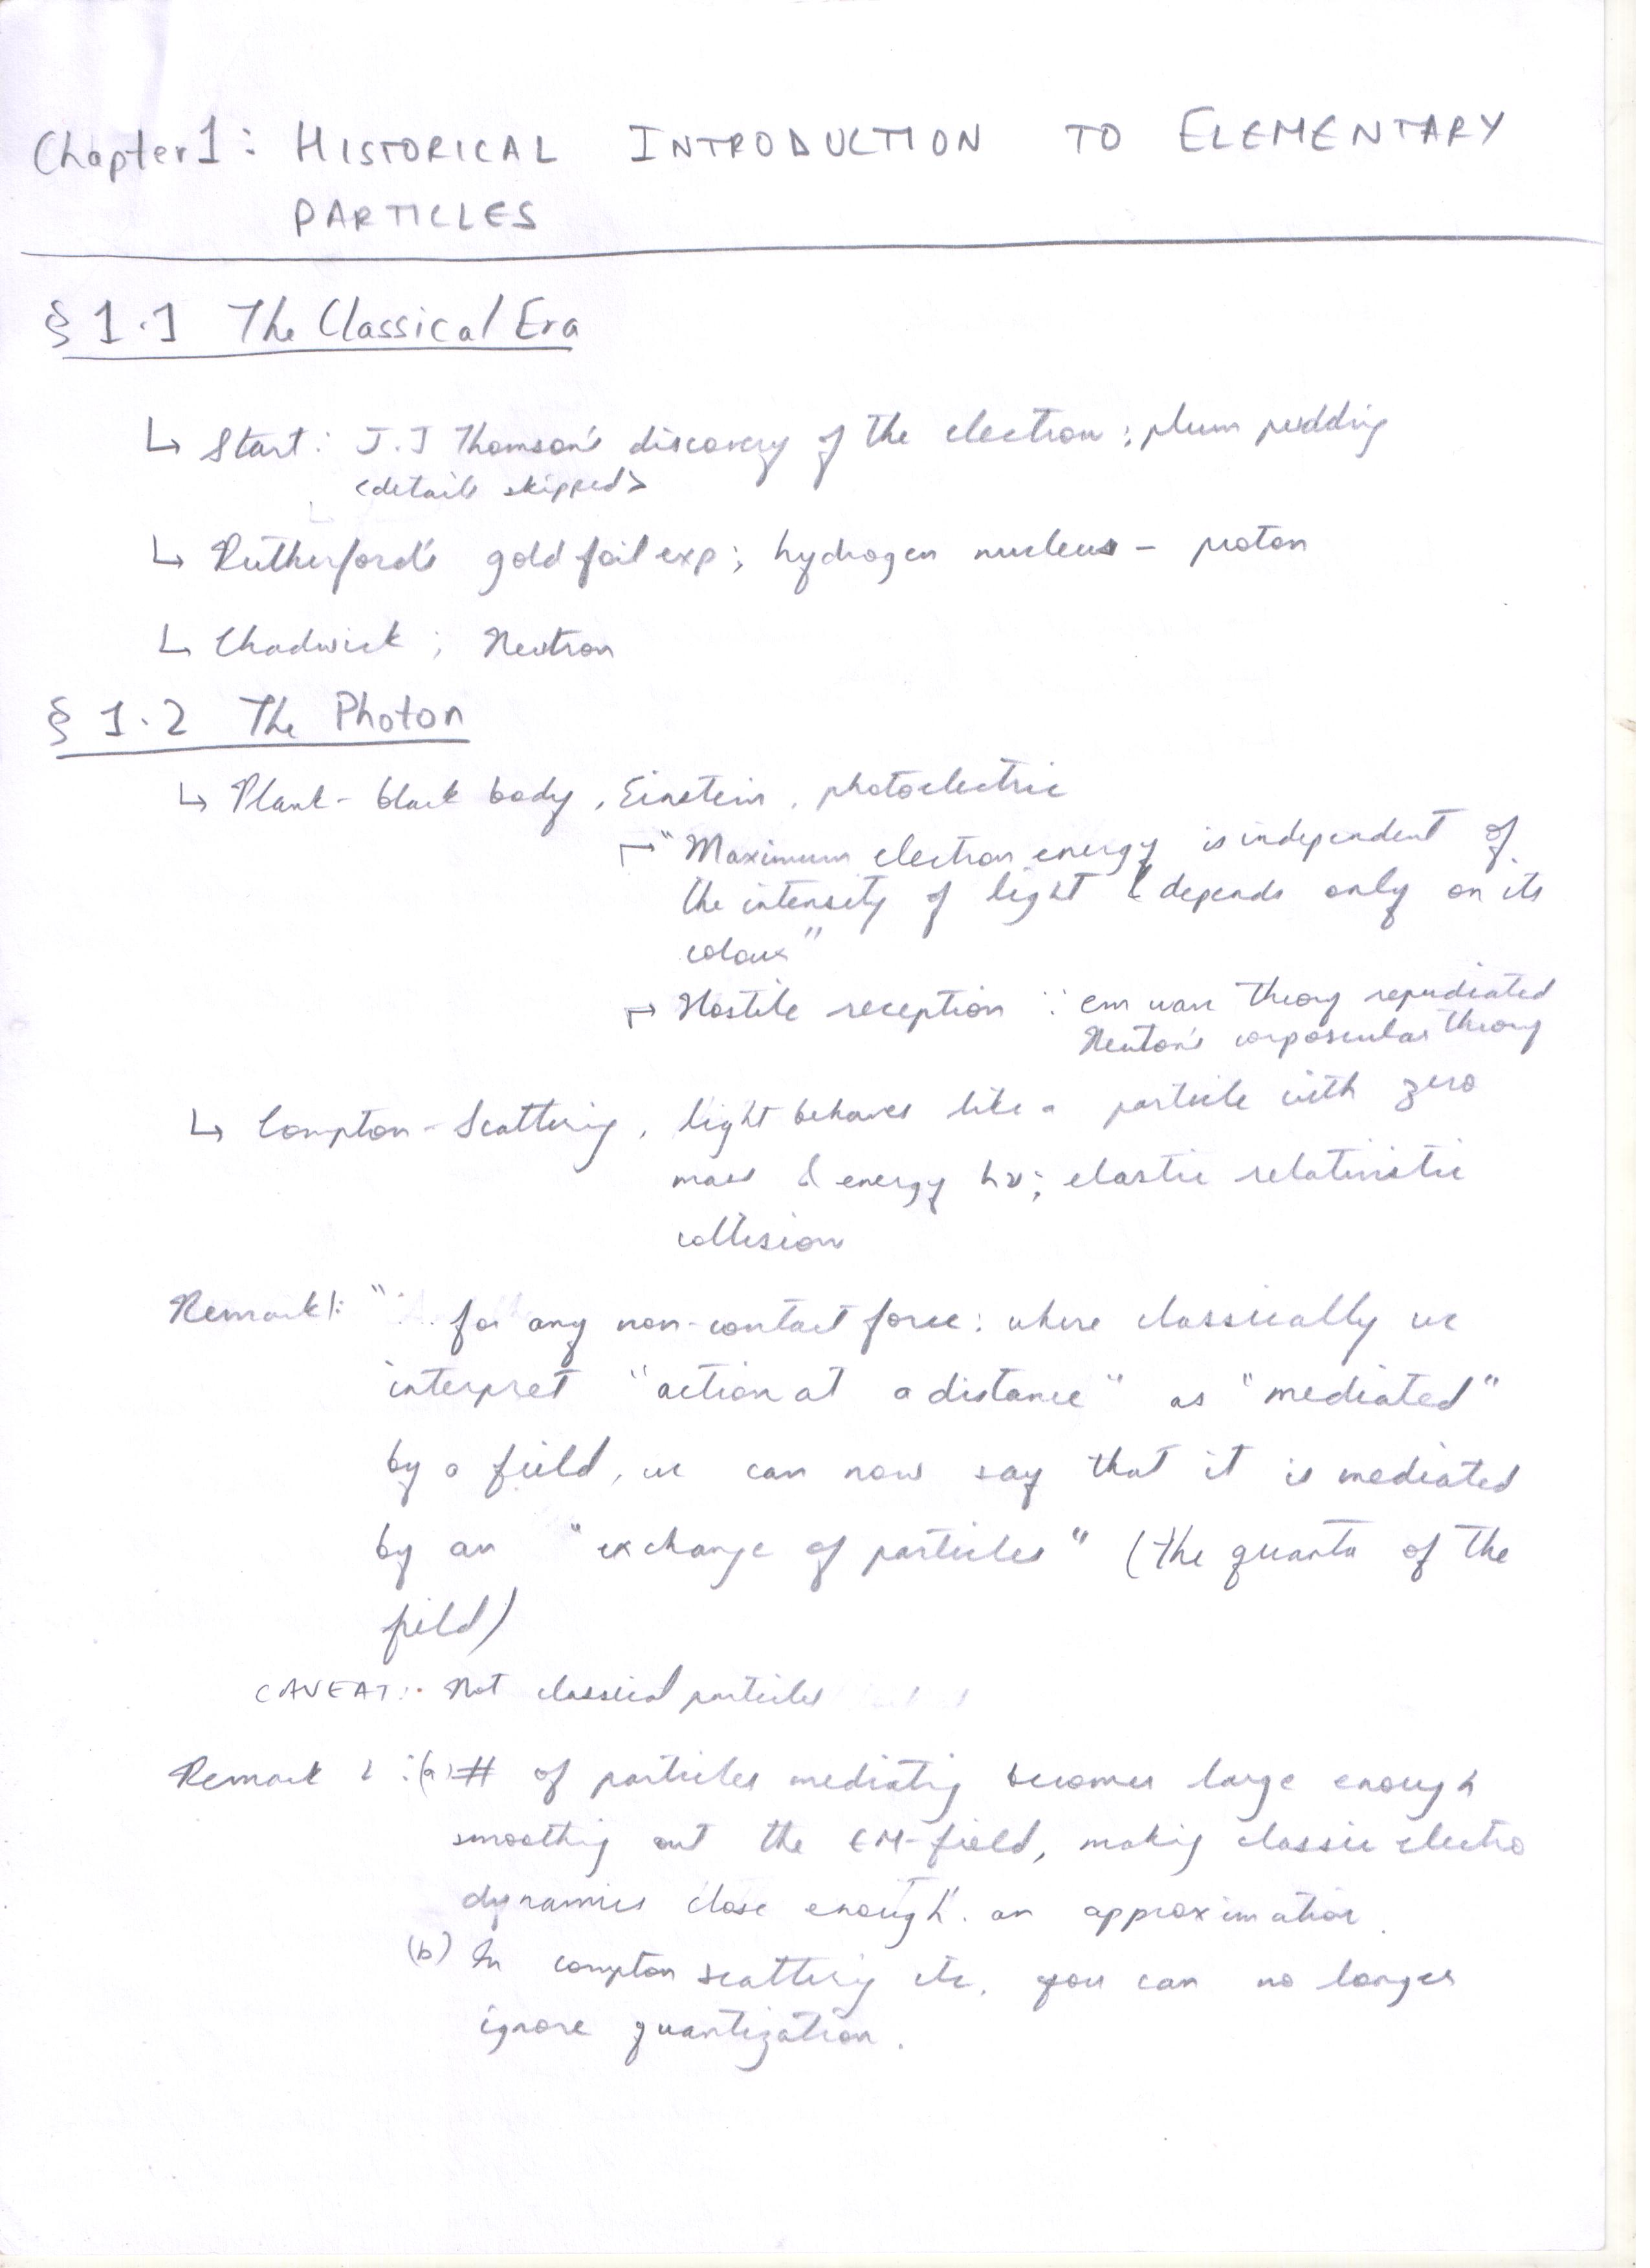 Chapter 1: HISTORICAL INTRODUCTION TO ELEMENTARY
PARTICLES
§ 1.1 The Classical Era
↳ Start: J.J Thomson's discovery of the electron; plum pudding
<details skipped>
↳ Rutherford's gold foil exp; hydrogen nucleus - proton
↳ Chadwick; Neutron
§ 1.2 The Photon
↳ Plank - black body, Einstein, photoelectric
↱ "Maximum electron energy is independent of
the intensity of light & depends only on its
colour"
↱ Hostile reception ∵ em wave theory repudiated
Newton's corposcular theory
↳ Compton-Scattering, light behaves like a particle with zero
mass & energy hν; elastic relativistic
collision
Remark 1: "∵ for any non-contact force: where classically we
interpret "action at a distance" as "mediated"
by a field, we can now say that it is mediated
by an "exchange of particles" (the quanta of the
field)
CAVEAT: Not classical particles
Remark 2: (a) # of particles mediating becomes large enough
smoothing out the EM-field, making classic electro
dynamics 'close enough' an approximation.
(b) In compton scattering etc. you can no longer
ignore quantization.